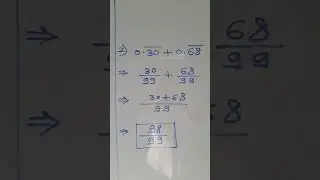 →) 0.3̅0̅ + 0.6̅8̅
⇒ 30/99 + 68/99
⇒ 30+68/99
⇒ 98/99